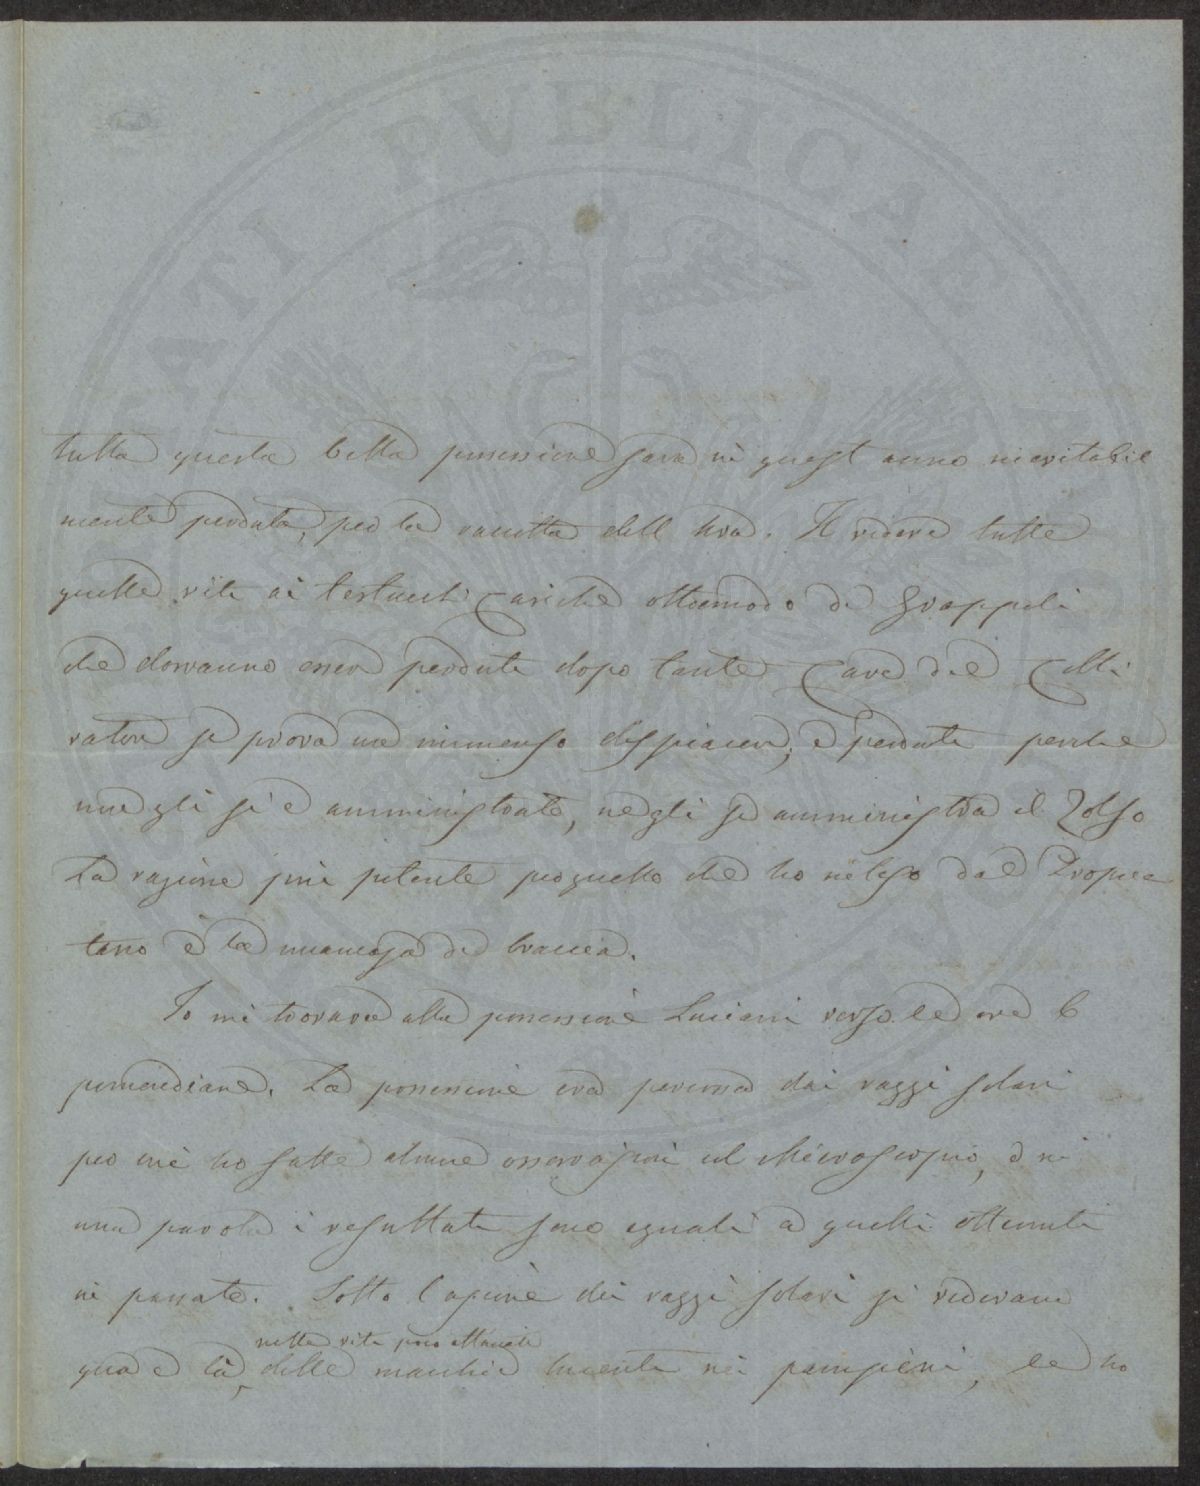 tutta questa bella possessione sarà in quest anno inevitabil
mente perduta, per la raccolta dell Uva. Il vedere tutte
quelle viti ai testucchi cariche oltremodo di grappoli
che dovranno esser perdute dopo tante cure del Colti
vatore si prova un immenso dispiacere; e perdute perche
non gli si è amministrato, ne gli si amministra il Zolfo
La ragione più potente per quello che ho inteso dal Proprie
tario è la mancanza di braccia.
Io mi trovava alla possessione Luciani verso le ore 6
pomeridiane. La possessione era percossa dai raggi solari
per cui ho fatte alcune osservazioni col Microscopio, e in
una parola i resultati sono eguali a quelli ottenuti
in passato. Sotto l azione dei raggi solari si vedevano
nelle viti poco attaccate
qua e là, delle macchie lucenti nei pampini, le ho
PVBLICAE